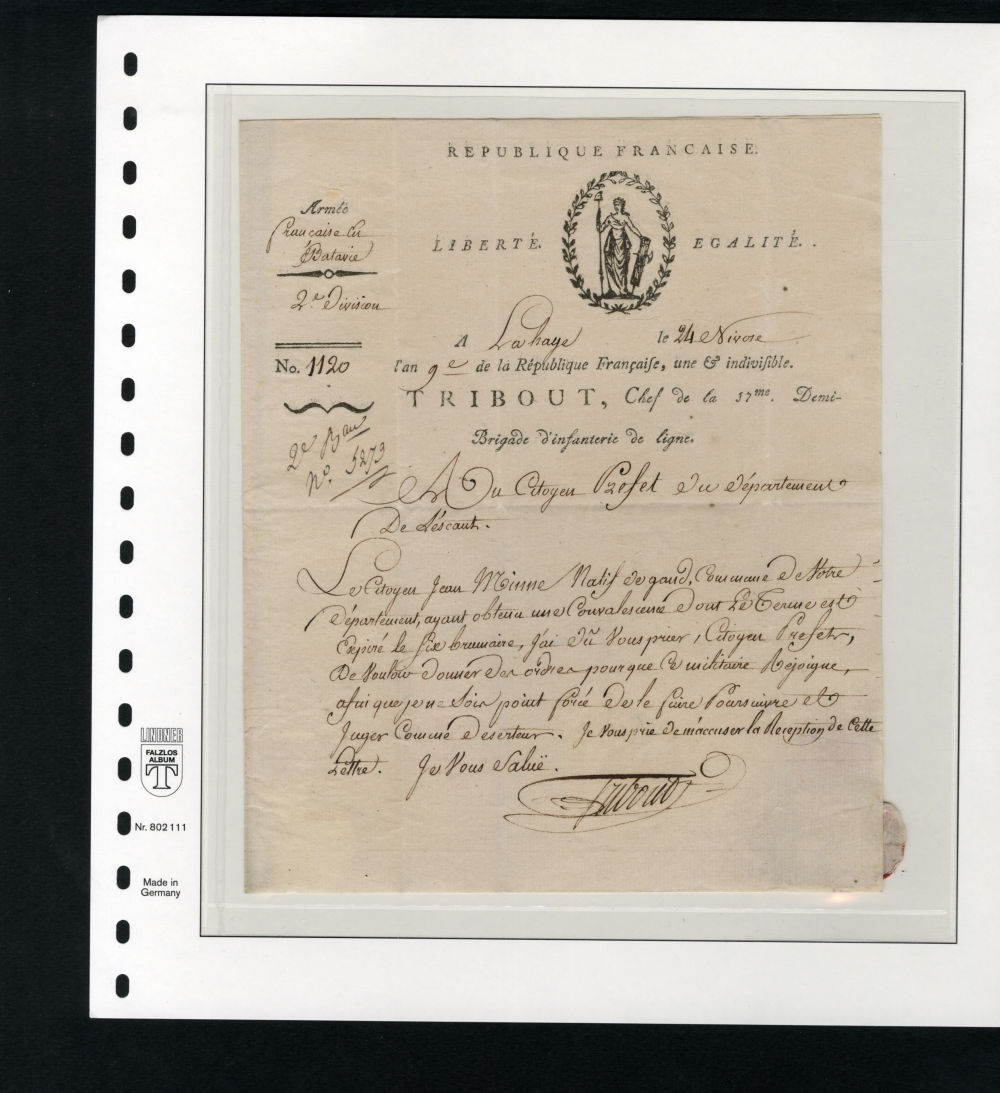 REPUBLIQUE FRANCAISE.
LIBERTÉ. EGALITÉ.
Armée
française En
Batavie
2.e Division
No. 1120
2e Bau
No. 5273
A Lahaye le 24 Nivose
l'an 9e de la République Françaiſe, une & indiviſible.
TRIBOUT, Chef de la 17me. Demi-
Brigade d'infanterie de ligne.
Au Citoyen Prefet du département
De Léscaut.
Le Citoyen Jean Minne Natif de gand, Commune de Votre
département, ayant obtenu une Convalescence dont Le Terme est
Expiré le six brumaire, J'ai du Vous prier, Citoyen Prefet,
De Vouloir donner des ordres pour que Ce militaire Rejoigne,
afin que je ne Sois point forcé de le faire Poursuivre et
Juger Comme deserteur. Je Vous prie de m'accuser la Reception de Cette
Lettre. Je Vous Saluë.
Tribout
LINDNER
FALZLOS
ALBUM
T
Nr. 802 111
Made in
Germany